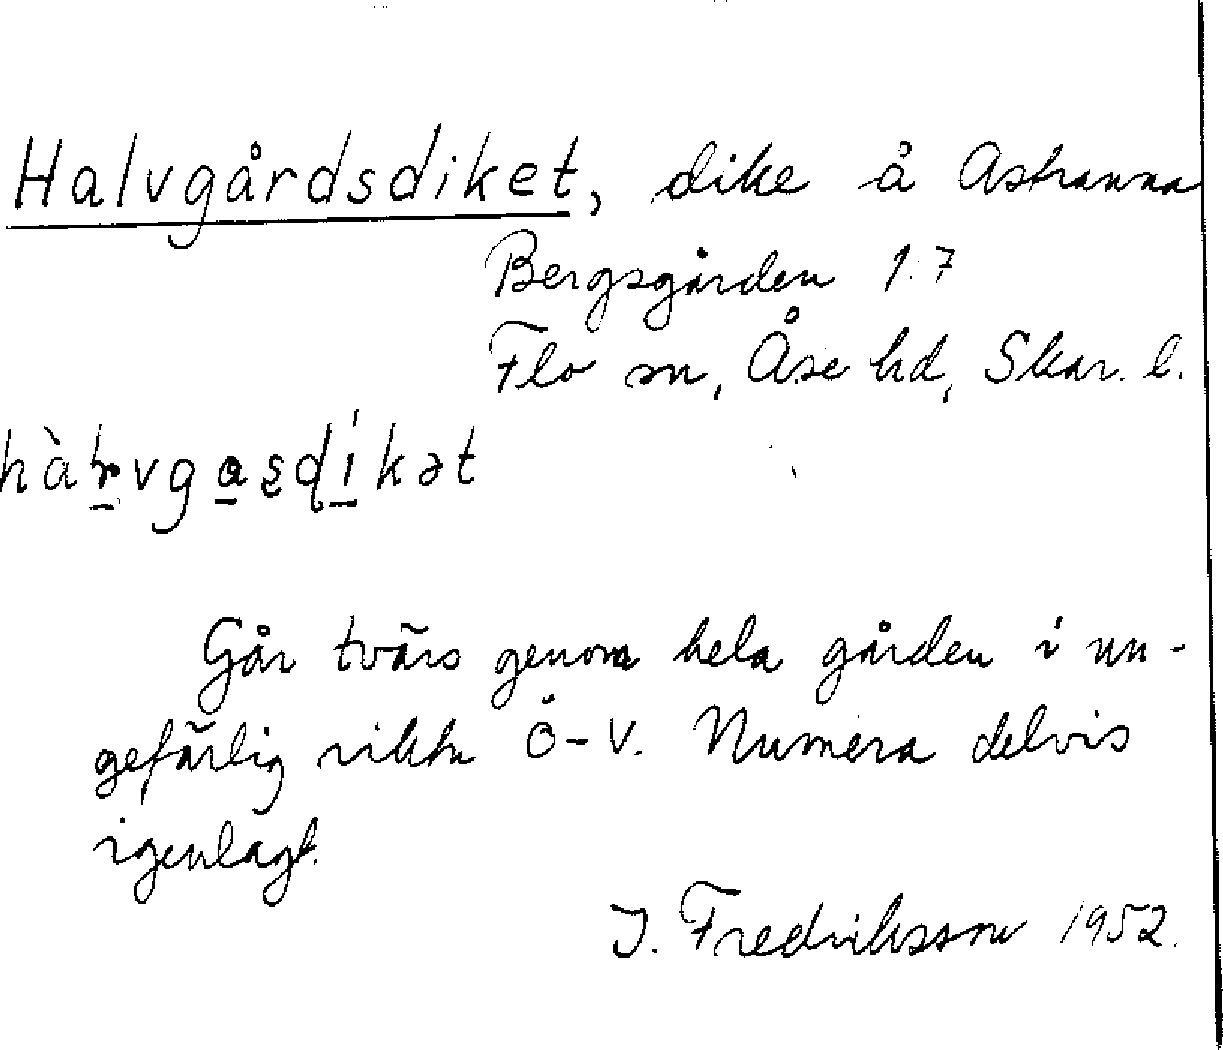 Halvgårdsdiket, dike å Astranna
Bergsgården 1:7
Flo sn, Åse hd, Skar. l.
Går tvärs genom hela gården i un-
gefärlig riktn Ö-V. Numera delvis
igenlagt.
J. Fredriksson 1952.